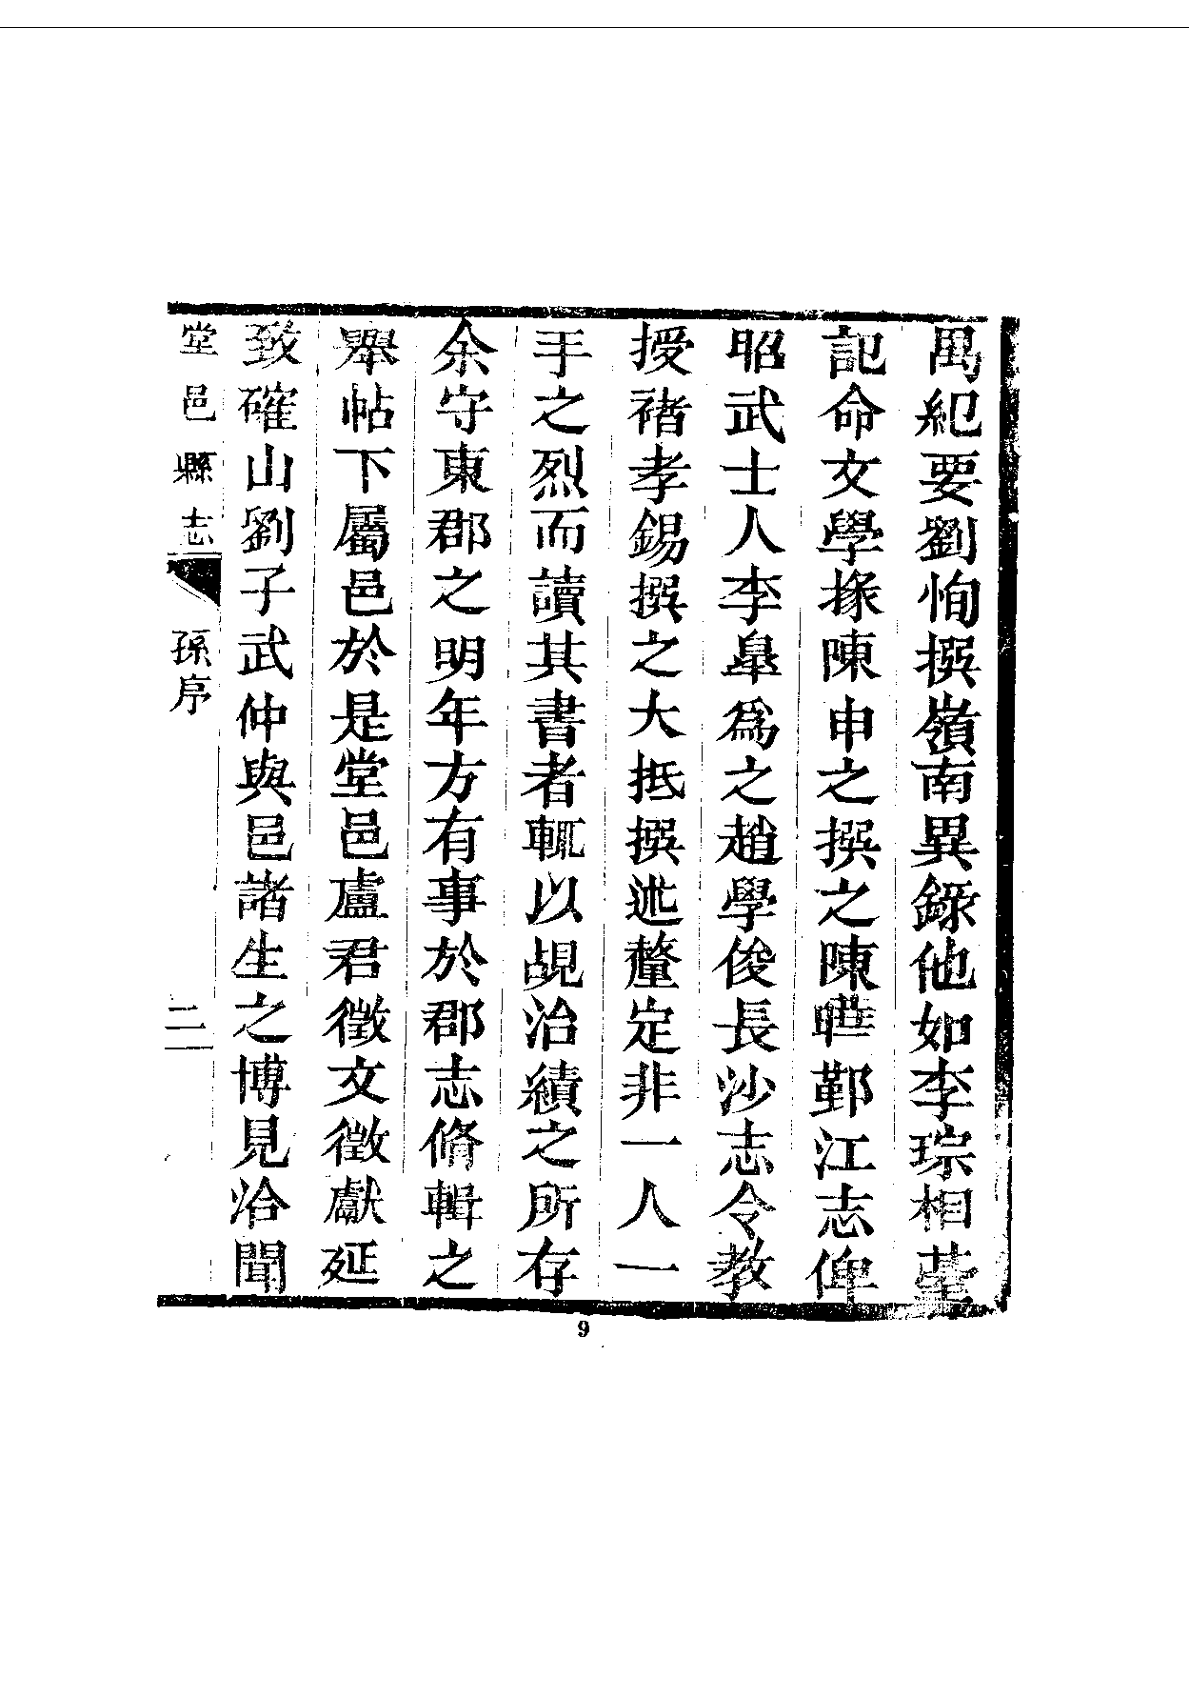 萬紀要劉恂撰嶺南異錄他如李琮相臺
記命文學掾陳申之撰之陳曄鄞江志俾
昭武士人李皐爲之趙學俊長沙志令教
授褚孝錫撰之大抵撰述釐定非一人一
手之烈而讀其書者輒以覘治績之所存
余守東郡之明年方有事於郡志脩輯之
舉帖下屬邑於是堂邑盧君徵文徵獻延
致確山劉子武仲與邑諸生之博見洽聞
堂邑縣志 孫序 二
9